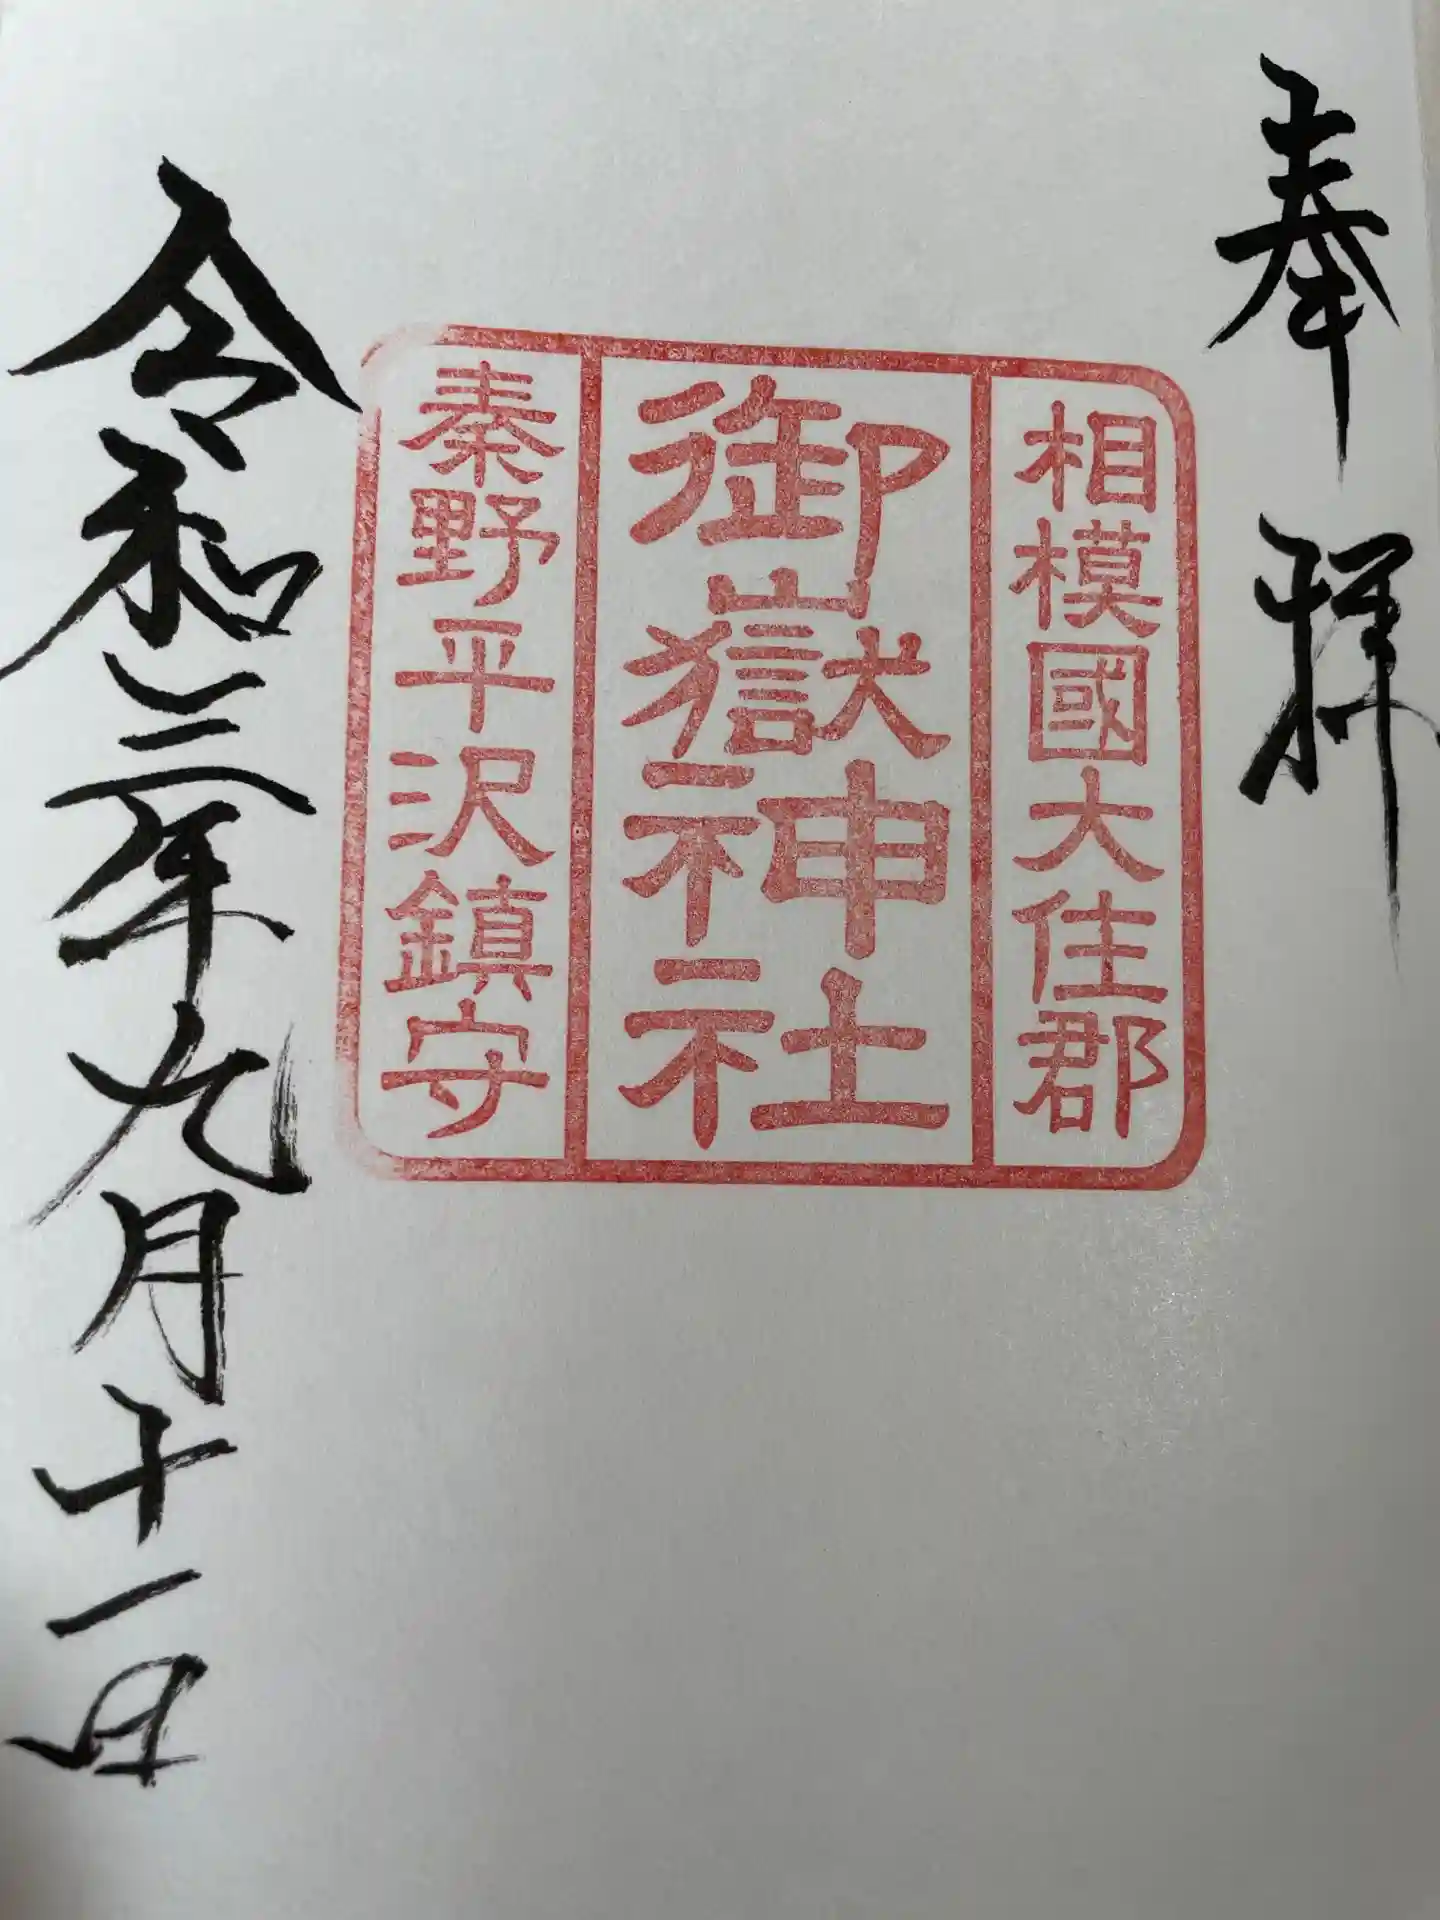 奉拝
相模國大住郡
御嶽神社
秦野平沢鎮守
令和三年九月十一日